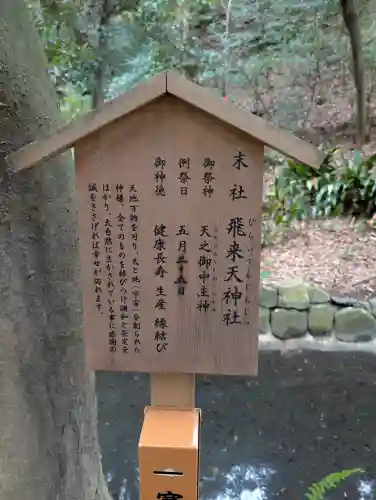 末社 飛来天神社
ひらいてんじんしゃ
御祭神 天之御中主神
例祭日 五月二十五日
御神徳 健康長寿 生産 縁結び
天地万物を司り、天と地(宇宙)を創られた
神様。全てのものを結びつけ調和と安定を
はかり、大自然に生かされている事に感謝の
誠をささげれば幸せが訪れます。